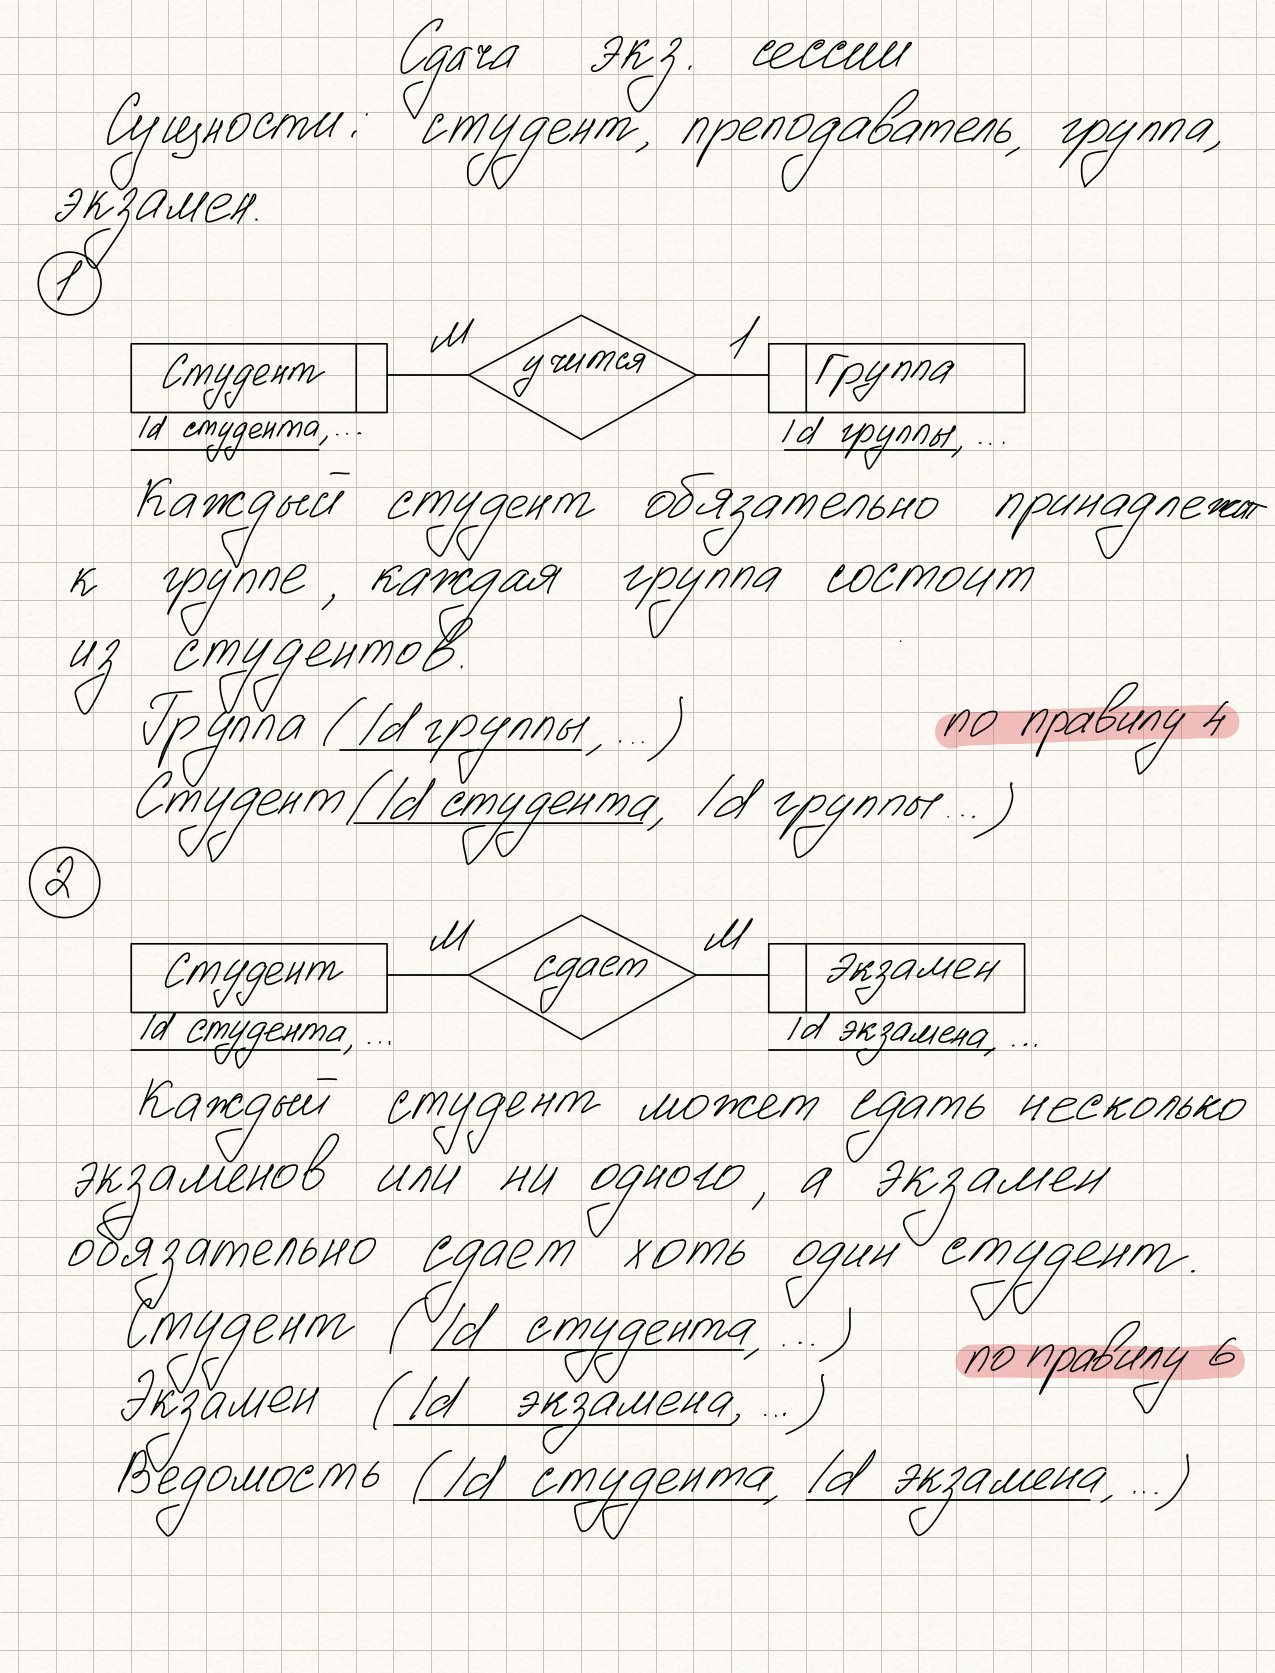 Сдача экз. сессии
Сущности: студент, преподаватель, группа,
экзамен.
1
Студент М учится 1 Группа
Id студента, ... Id группы, ...
Каждый студент обязательно принадлежит
к группе, каждая группа состоит
из студентов.
Группа (Id группы, ...) по правилу 4
Студент (Id студента, Id группы ...)
2
Студент М сдает М Экзамен
Id студента, ... Id экзамена, ...
Каждый студент может сдать несколько
экзаменов или ни одного, а экзамен
обязательно сдает хоть один студент.
Студент (Id студента, ...) по правилу 6
Экзамен (Id экзамена, ...)
Ведомость (Id студента, Id экзамена, ...)